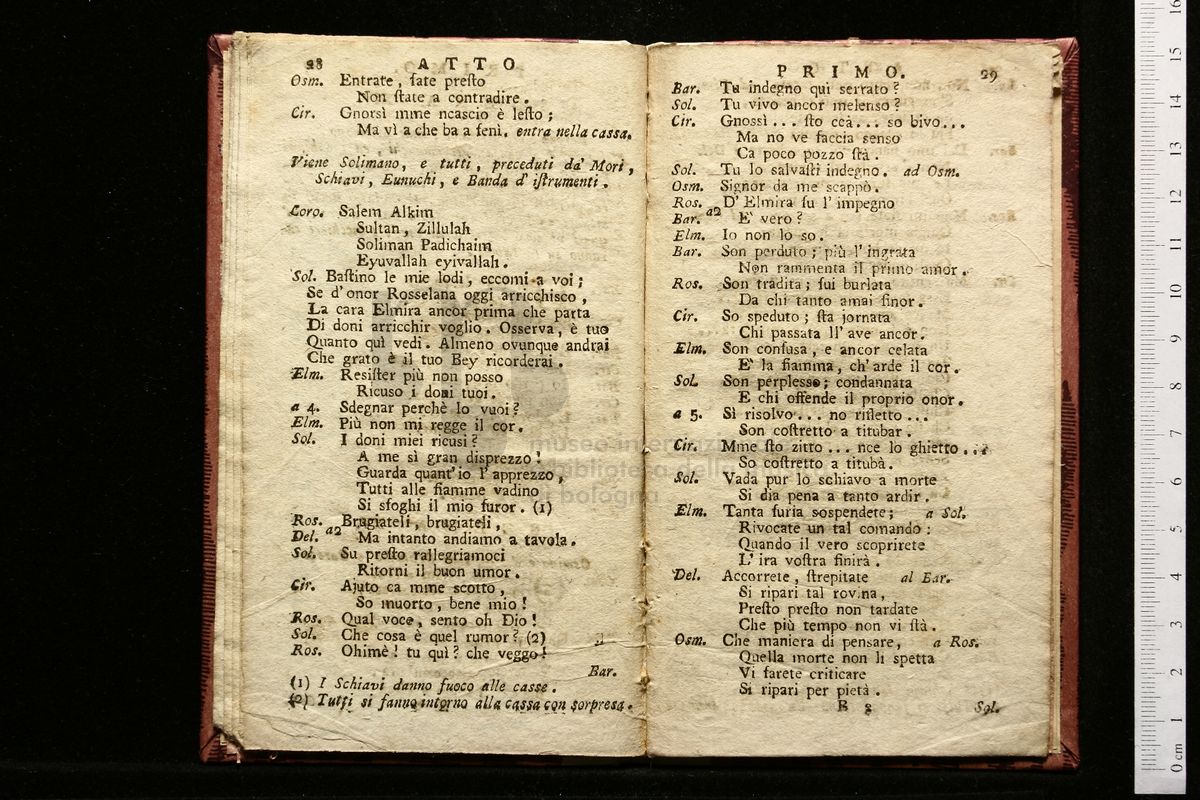 28 ATTO
Osm. Entrate, fate presto
Non state a contradire.
Cir. Gnorsì mme ncascio è lesto;
Ma vì a che ba a fenì. entra nella cassa.
Viene Solimano, e tutti, preceduti da' Mori,
Schiavi, Eunuchi, e Banda d' istrumenti.
Loro. Salem Alkim
Sultan, Zillulah
Soliman Padichaim
Eyuvallah eyivallah.
Sol. Bastino le mie lodi, eccomi a voi;
Se d'onor Rosselana oggi arricchisco,
La cara Elmira ancor prima che parta
Di doni arricchir voglio. Osserva, è tuo
Quanto quì vedi. Almeno ovunque andrai
Che grato è il tuo Bey ricorderai.
Elm. Resister più non posso
Ricuso i doni tuoi.
a 4. Sdegnar perchè lo vuoi?
Elm. Più non mi regge il cor.
Sol. I doni miei ricusi?
A me sì gran disprezzo!
Guarda quant' io l' apprezzo,
Tutti alle fiamme vadino
Si sfoghi il mio furor. (1)
Ros. Brugiateli, brugiateli,
Del. a2 Ma intanto andiamo a tavola.
Sol. Su presto rallegriamoci
Ritorni il buon umor.
Cir. Ajuto ca mme scotto,
So muorto, bene mio!
Ros. Qual voce, sento oh Dio!
Sol. Che cosa è quel rumor? (2)
Ros. Ohimè! tu quì? che veggo!
Bar.
(1) I Schiavi danno fuoco alle casse.
(2) Tutti si fanno intorno alla cassa con sorpresa.
PRIMO. 29
Bar. Tu indegno qui serrato?
Sol. Tu vivo ancor melenso?
Cir. Gnossì... sto ccà... so bivo...
Ma no ve faccia senso
Ca poco pozzo stà.
Sol. Tu lo salvasti indegno. ad Osm.
Osm. Signor da me scappò.
Ros. D' Elmira fu l' impegno
Bar. a2 E' vero?
Elm. Io non lo so.
Bar. Son perduto; più l' ingrata
Non rammenta il primo amor.
Ros. Son tradita; fui burlata
Da chi tanto amai finor.
Cir. So speduto; sta jornata
Chi passata ll' ave ancor.
Elm. Son confusa, e ancor celata
E' la fiamma, ch' arde il cor.
Sol. Son perplesso; condannata
E chi offende il proprio onor.
a 5. Sì risolvo... no rifletto...
Son costretto a titubar.
Cir. Mme sto zitto... nce lo ghietto...?
So costretto a titubà.
Sol. Vada pur lo schiavo a morte
Si dia pena a tanto ardir.
Elm. Tanta furia sospendete; a Sol.
Rivocate un tal comando:
Quando il vero scoprirete
L' ira vostra finirà.
Del. Accorrete, strepitate al Bar.
Si ripari tal rovina,
Presto presto non tardate
Che più tempo non vi stà.
Osm. Che maniera di pensare, a Ros.
Quella morte non li spetta
Vi farete criticare
Si ripari per pietà.
Sol.
museo internaz
biblioteca della
di bologna
0 cm 1 2 3 4 5 6 7 8 9 10 11 12 13 14 15 16